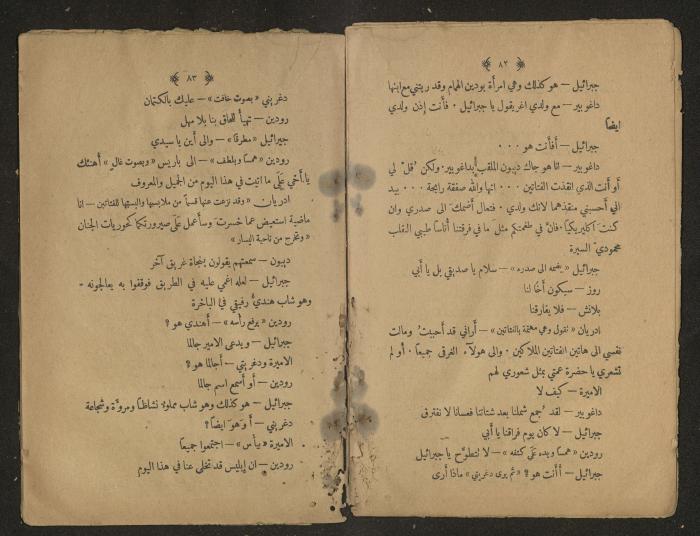 ﴿ ٨٢ ﴾
جبرائيل — هو كذلك وهي امرأة بودين الهمام وقد ربتني مع ابنها
داغوبير — مع ولدي اغريقول يا جبرائيل . فأنت إذن ولدي
ايضاً
جبرائيل — أفأنت هو . . .
داغوبير — انا هو جاك دبون الملقب بداغوبير. ولكن قل لي
أو أنت الذي انقذت الفتاتين . . . انها والله صفقة رابحة . . . بيد
اني احسبني منقذهما لانك ولدي . فتعال أضمك الى صدري وان
كنت اكليريكيا . فانَّ في طغمتكم مثل ما في فرقتنا أناساً طيبي القلب
محمودي السيرة
جبرائيل « يضمه الى صدره » — سلام يا صديقي بل يا أبي
روز — سيكون أخاً لنا
بلانش — فلا يفارقنا
ادريان « تقول وهي مهتمة بالفتاتين » — أراني قد أحببتُ ومالت
نفسي الى هاتين الفتاتين الملاكين . والى هولآء الغرقى جميعاً . أو لم
تشعري يا حضرة عمتي بمثل شعوري لهم
الاميرة — كيف لا
داغوبير — لقد جمع شملنا بعد شتاتنا فعسانا لا نفترق
جبرائيل — لا كان يوم فراقنا يا أبي
رودين « همساً ويده على كتفه » — لا تتطوح يا جبرائيل
جبرائيل — أأنت هو ؟ « ثم يرى دغربني » ماذا أرى
﴿ ٨٣ ﴾
دغربني « بصوت خافت » — عليك بالكتمان
رودين — تهيأ للحاق بنا بلا مهل
جبرائيل « مطرقاً » — والى أين يا سيدي
رودين « همساً وبلطف » — الى باريس « وبصوت عالٍ » أهنئك
يا أخي على ما اتيت في هذا اليوم من الجميل والمعروف
ادريان « وقد نزعت عنها قسماً من ملابسها والبستها للفتاتين — انا
ماضية استعيض عما خسرت وسأعمل على صيرورتكما كحوريات الجنان
« وتخرج من ناحية اليسار »
دبون — سمعتهم يقولون بنجاة غريق آخر
جبرائيل — لعله اغمي عليه في الطريق فوقفوا به يعالجونه -
وهو شاب هنديٌ رفيقي في الباخرة
رودين « يرفع رأسه » — أهندي هو ؟
جبرائيل — ويدعى الامير جالما
الاميرة ودغربني — أجالما هو ؟
رودين — أو أسمع اسم جالما
جبرائيل — هو كذلك وهو شاب مملوء نشاطاً ومروة وشجاعة
دغربني — أ و هوَ ايضاً ؟
الاميرة « بيأس » — اجتمعوا جميعاً
رودين — ان إبليس قد تخلى عنا في هذا اليوم